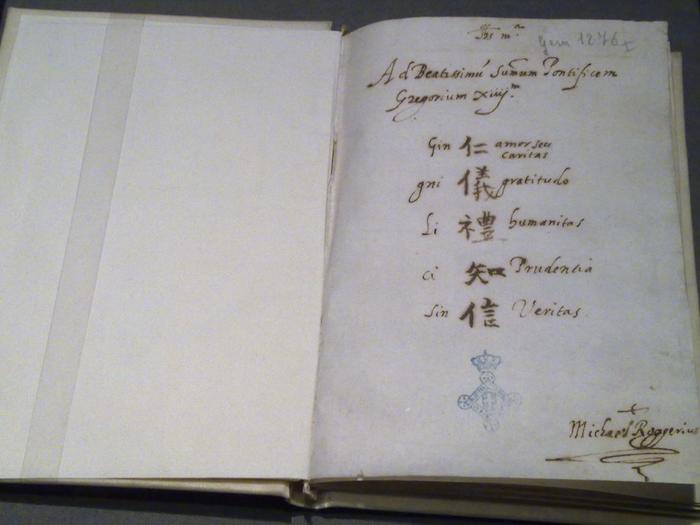 Jhs mᵃ
Gren 1276
Ad Beatissimũ Sum̃um Pontificem
Gregorium xiiijᵐ.
Gin 仁 amor seu caritas
gni 儀 gratitudo
Li 禮 humanitas
ci 知 Prudentia
sin 信 Veritas.
Michael Roggerius